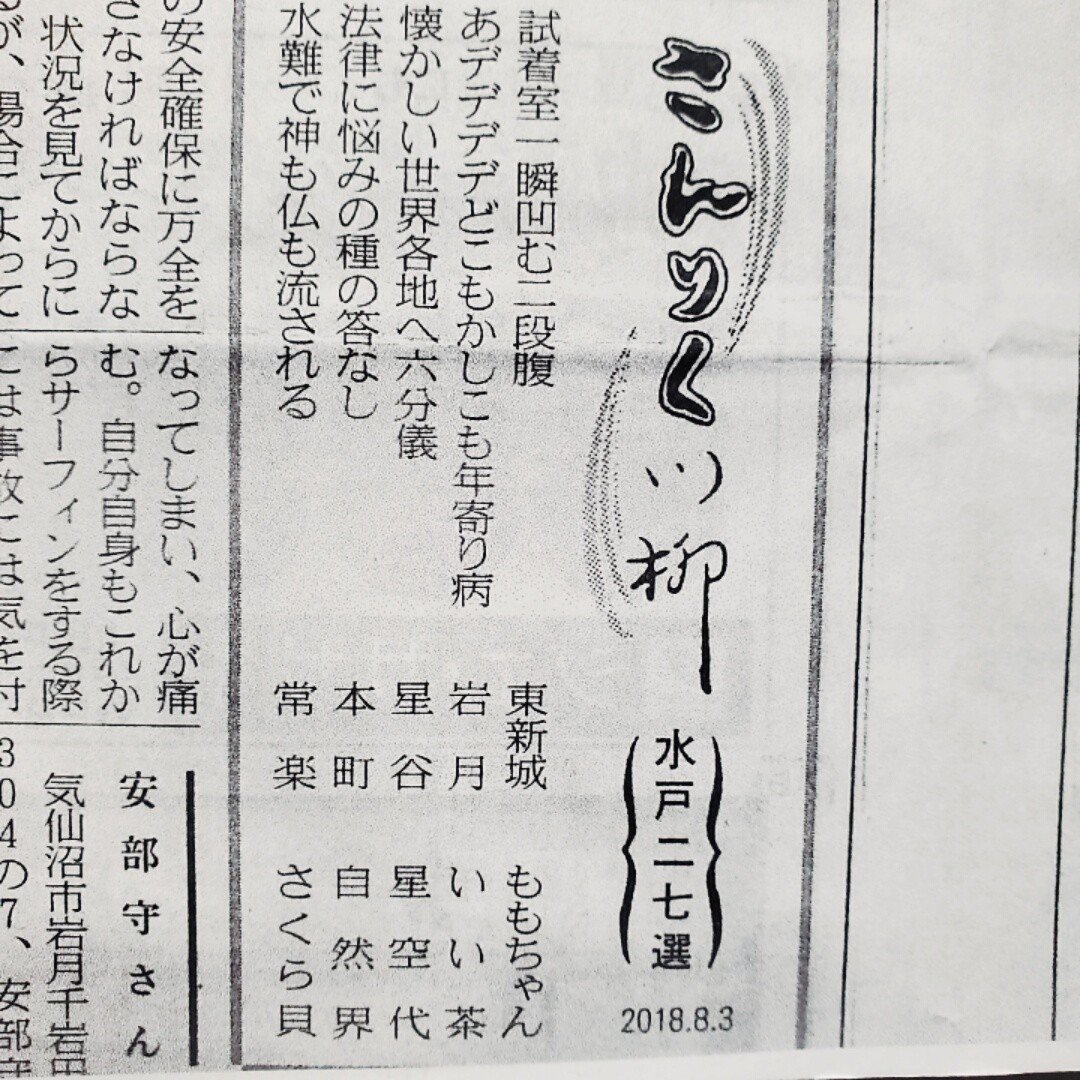 こんりく川柳
水戸二七選
2018.8.3
試着室一瞬凹む二段腹
東新城 ももちゃん
あデデデデどこもかしこも年寄り病
岩月 いい茶
懐かしい世界各地へ六分儀
星谷 星空代
法律に悩みの種の答なし
本町 自然界
水難で神も仏も流される
常楽 さくら貝
の安全確保に万全を
さなければならな
状況を見てからに
が、場合によって
なってしまい、心が痛
む。自分自身もこれか
らサーフィンをする際
には事故には気を付
安部守さん
気仙沼市岩月千岩田
304の7、安部守